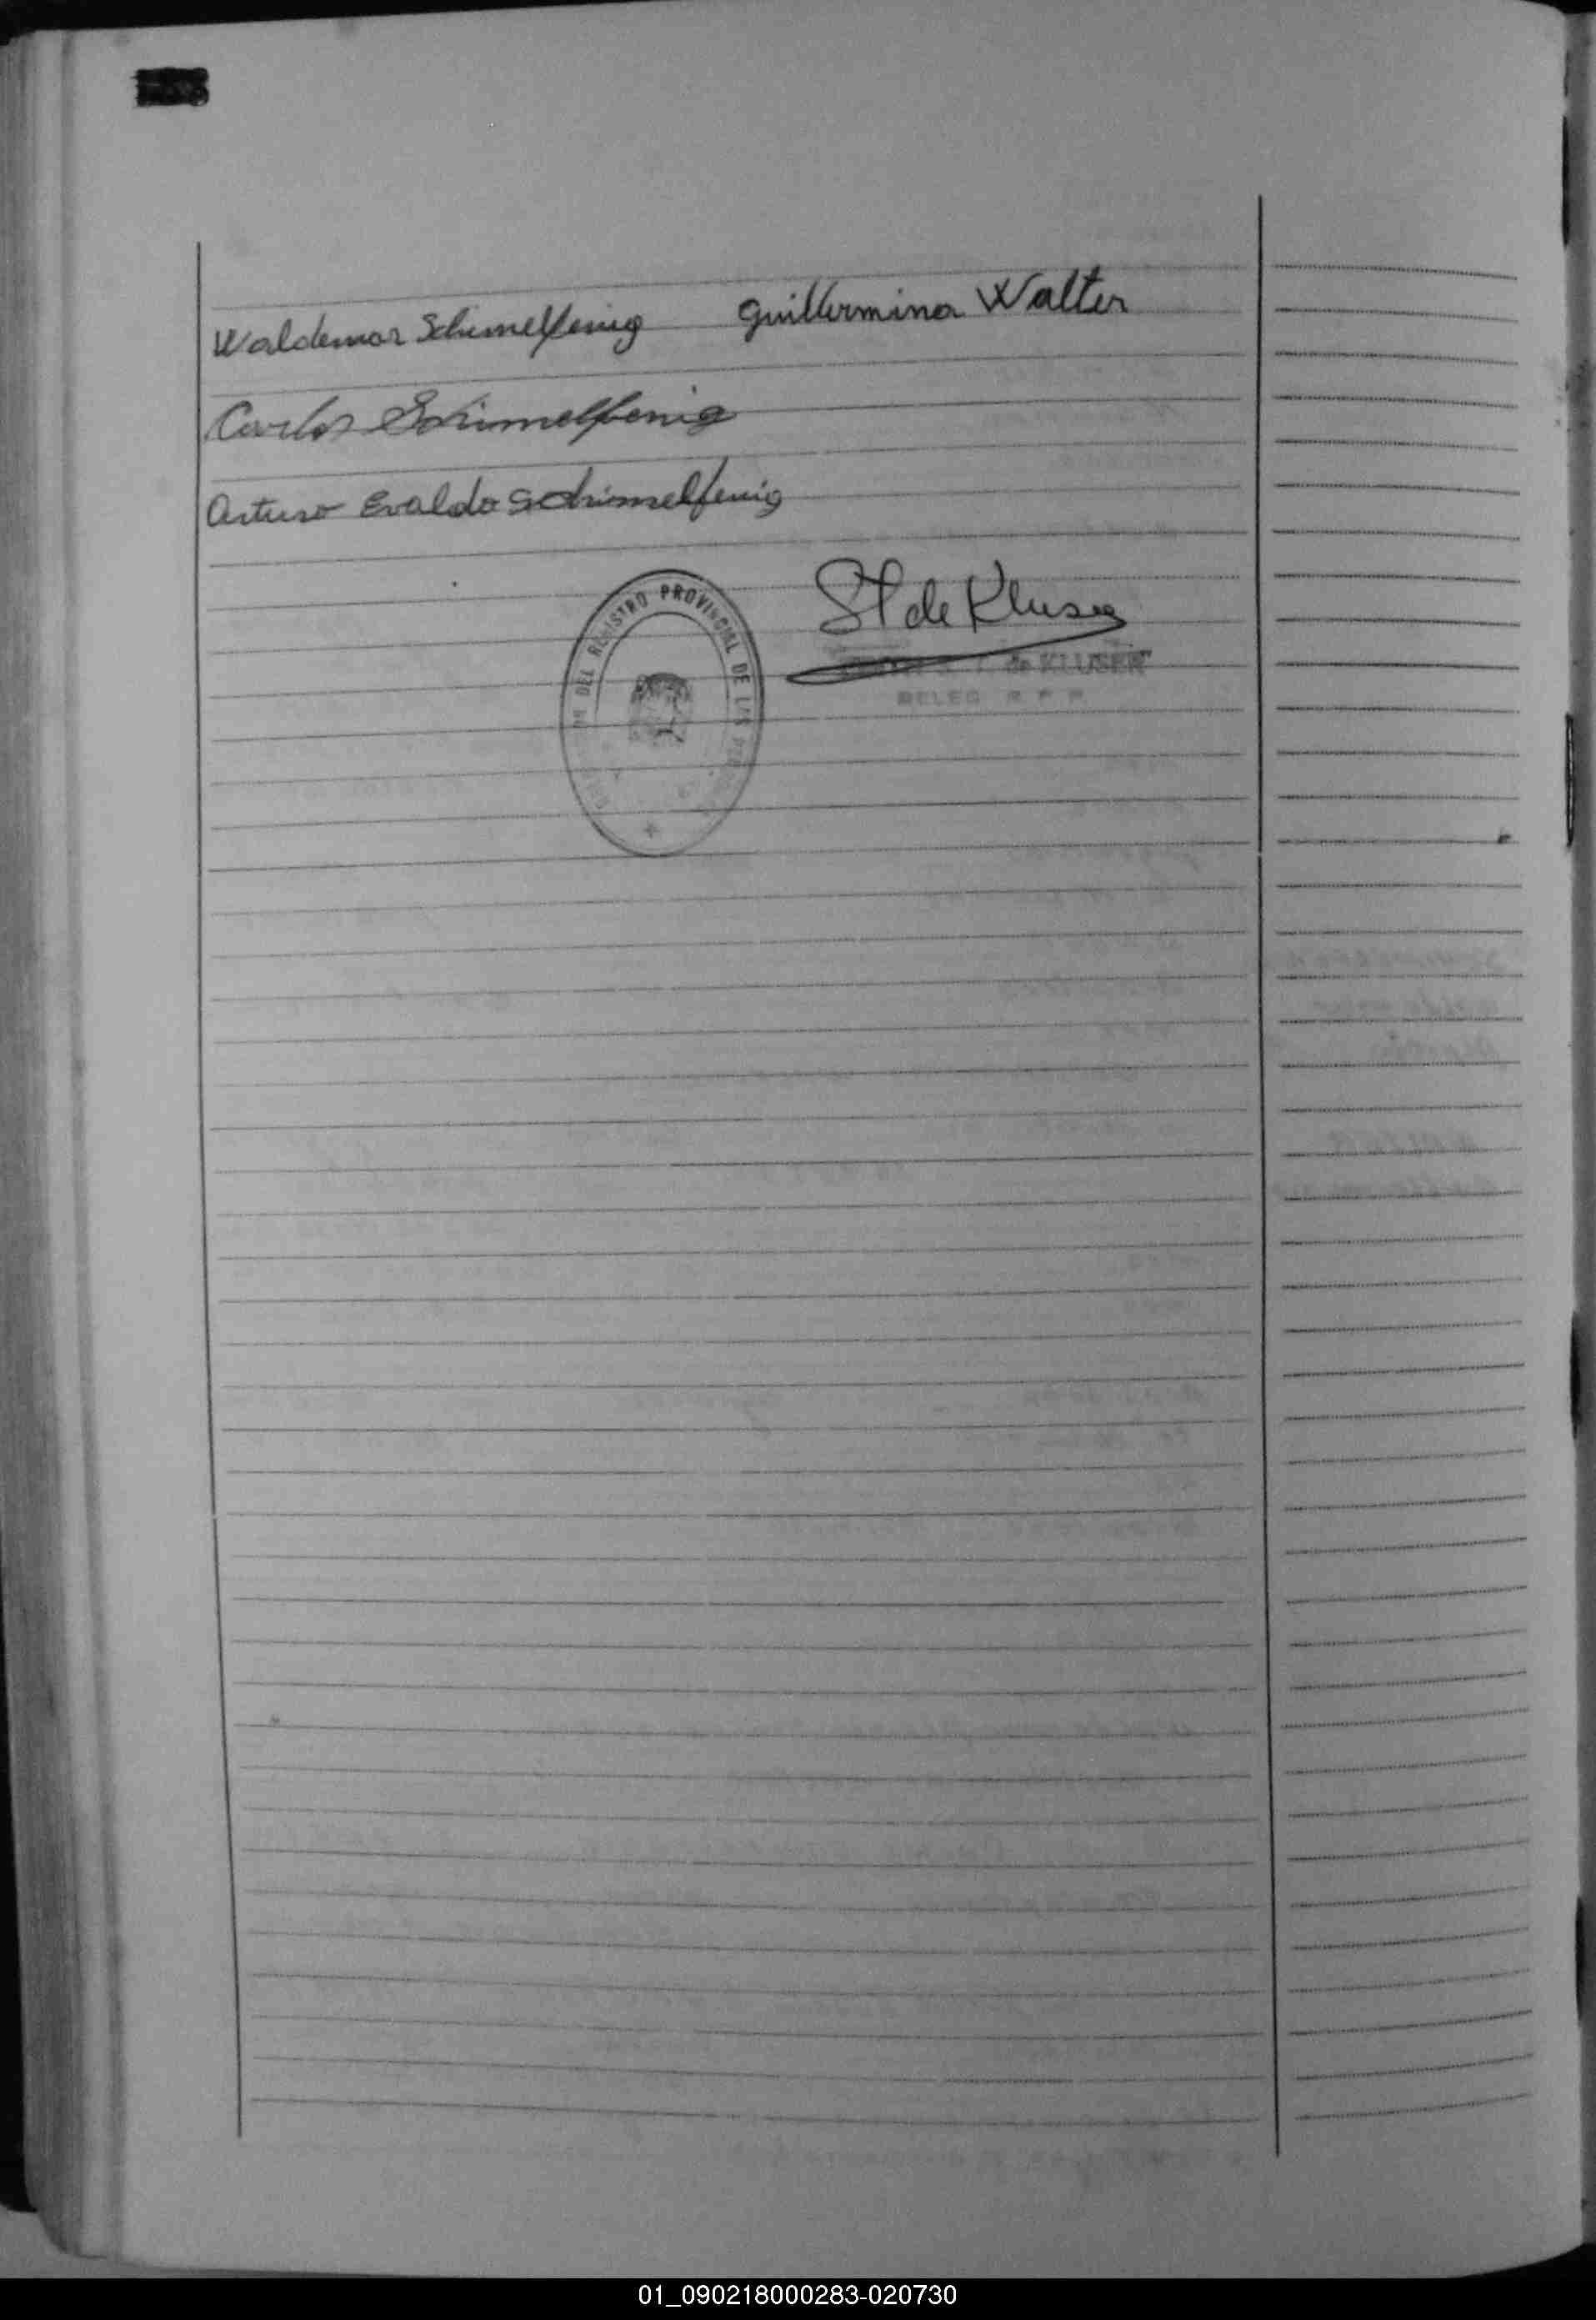 Waldemar Schimelfenig Guillermina Walter
Carlos Schimelfenig
Arturo Evaldo Schimelfenig
St de Kluser
DEL REGISTRO PROVINCIAL DE LAS
de KLUSER
DELEG R. P. P.
01_090218000283-020730